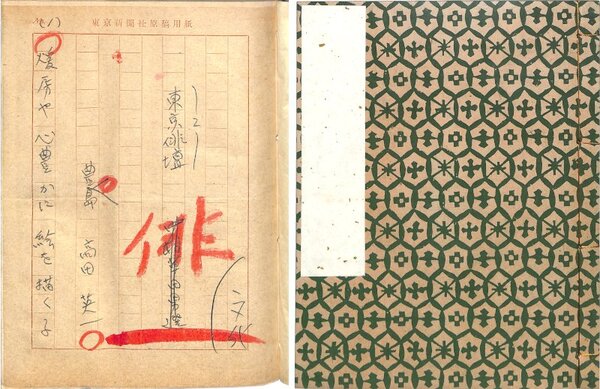 東京新聞社原稿用紙
(1)
(文化
俳
ー2ー
東京俳壇
豊島 高田 英一
煖房や 心豊かに 絵を描く子